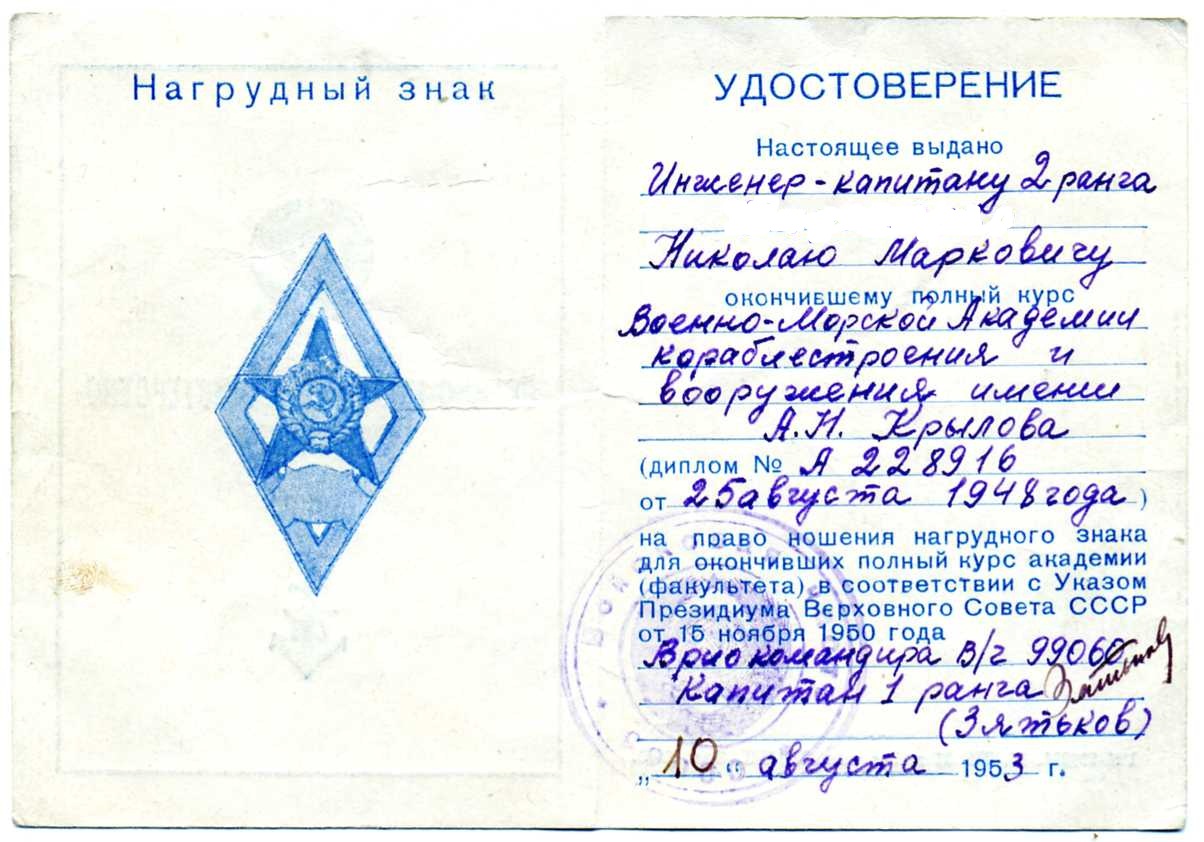 Нагрудный знак
УДОСТОВЕРЕНИЕ
Настоящее выдано
Инженер-капитану 2 ранга
Николаю Марковичу
окончившему полный курс
Военно-Морской Академии
кораблестроения и
вооружения имени
А.Н. Крылова
(диплом № А 228916
от 25 августа 1948 года)
на право ношения нагрудного знака
для окончивших полный курс академии
(факультета) в соответствии с Указом
Президиума Верховного Совета СССР
от 15 ноября 1950 года
Врио командира в/ч 99060
Капитан 1 ранга
(Зятьков)
„10“ августа 1953 г.